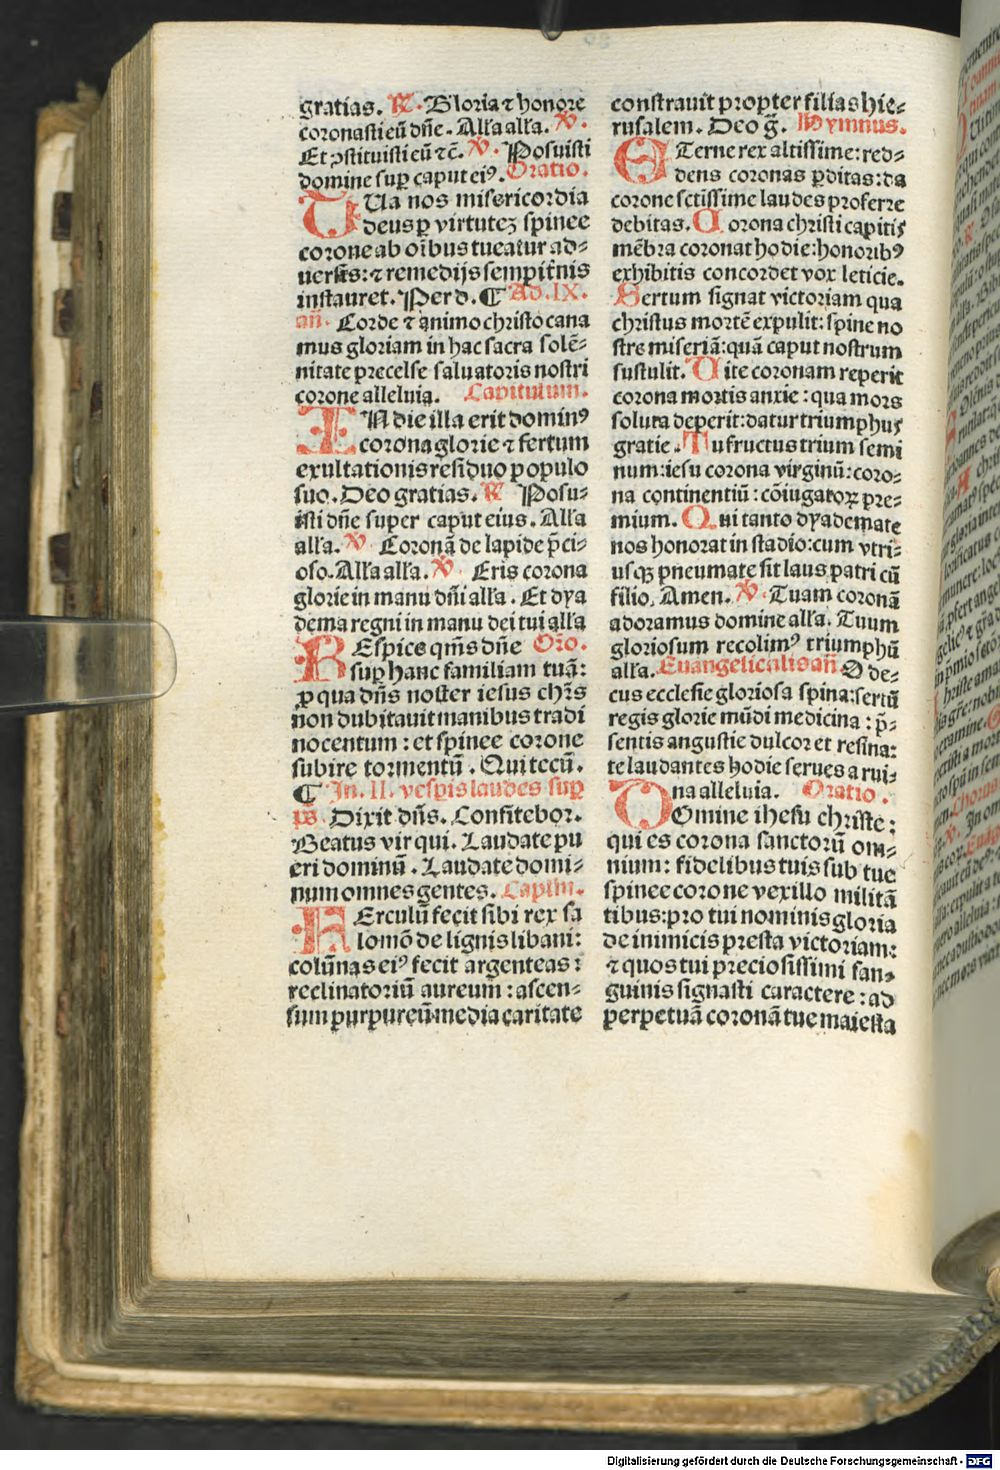 gratias. R̃. Gloria ⁊ honore
coronasti eū dñe. Alľa alľa. V̄.
Et ꝯstituisti eū ⁊c̄. V̄. Posuisti
domine suꝑ caput eiꝰ. Oratio.
TUa nos misericordia
deus ꝑ virtuteꝫ spinee
corone ab oībus tueatur ad⸗
uersis: ⁊ remedijs sempit̄nis
instauret. Per d. ¶ Ad. IX.
añ. Corde ⁊ animo christo cana
mus gloriam in hac sacra solē⸗
nitate precelse saluatoris nostri
corone alleluia. Capitulum.
IN die illa erit dominꝰ
corona glorie ⁊ sertum
exultationis residuo populo
suo. Deo gratias. R̃ Posu⸗
isti dñe super caput eius. Alľa
alľa. V̄ Coronā de lapide p̄ci⸗
oso. Alľa alľa. V̄. Eris corona
glorie in manu dñi alľa. Et dya
dema regni in manu dei tui alľa
REspice qm̄s dñe Or̃o.
suꝑ hanc familiam tuā:
ꝓ qua dñs noster iesus chr̄s
non dubitauit manibus tradi
nocentum: et spinee corone
subire tormentū. Qui tecū.
¶ In. II. vesꝑis laudes suꝑ
ps̄. Dixit dñs. Confitebor.
Beatus vir qui. Laudate pu
eri dominū. Laudate domi⸗
num omnes gentes. Capľm.
FErculū fecit sibi rex sa
lomō de lignis libani:
colūnas eiꝰ fecit argenteas:
reclinatoriū aureum: ascen⸗
sum purpureū media caritate
constrauit propter filias hie⸗
rusalem. Deo g̃. Hymnus.
ETerne rex altissime: red⸗
dens coronas ꝑditas: da
corone sctissime laudes proferre
debitas. Corona christi capitis
mēbra coronat hodie: honoribꝰ
exhibitis concordet vox leticie.
Sertum signat victoriam qua
christus mortē expulit: spine no
stre miseriā: quā caput nostrum
sustulit. Uite coronam reperit
corona mortis anxie: qua mors
soluta deperit: datur triumphus
gratie. Tu fructus trium semi
num: iesu corona virginū: coro⸗
na continentiū: cōiugatoꝝ pre⸗
mium. Qui tanto dyademate
nos honorat in stadio: cum vtri⸗
usqꝫ pneumate sit laus patri cū
filio. Amen. V̄. Tuam coronā
adoramus domine alľa. Tuum
gloriosum recolimꝰ triumphū
alľa. Euangelicalis añ O de⸗
cus ecclesie gloriosa spina: sertū
regis glorie mūdi medicina: p̄⸗
sentis angustie dulcor et resina:
te laudantes hodie serues a rui⸗
na alleluia. Oratio.
DOmine ihesu christe:
qui es corona sanctorū om⸗
nium: fidelibus tuis sub tue
spinee corone vexillo militā
tibus: pro tui nominis gloria
de inimicis presta victoriam:
⁊ quos tui preciosissimi san⸗
guinis signasti caractere: ad
perpetuā coronā tue maiesta
Digitalisierung gefördert durch die Deutsche Forschungsgemeinschaft - DFG